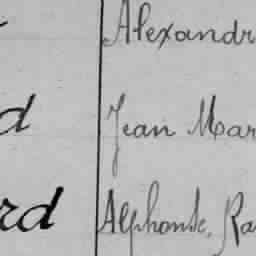 Alexandr
d Jean Mar
rd Alphonse, Ra